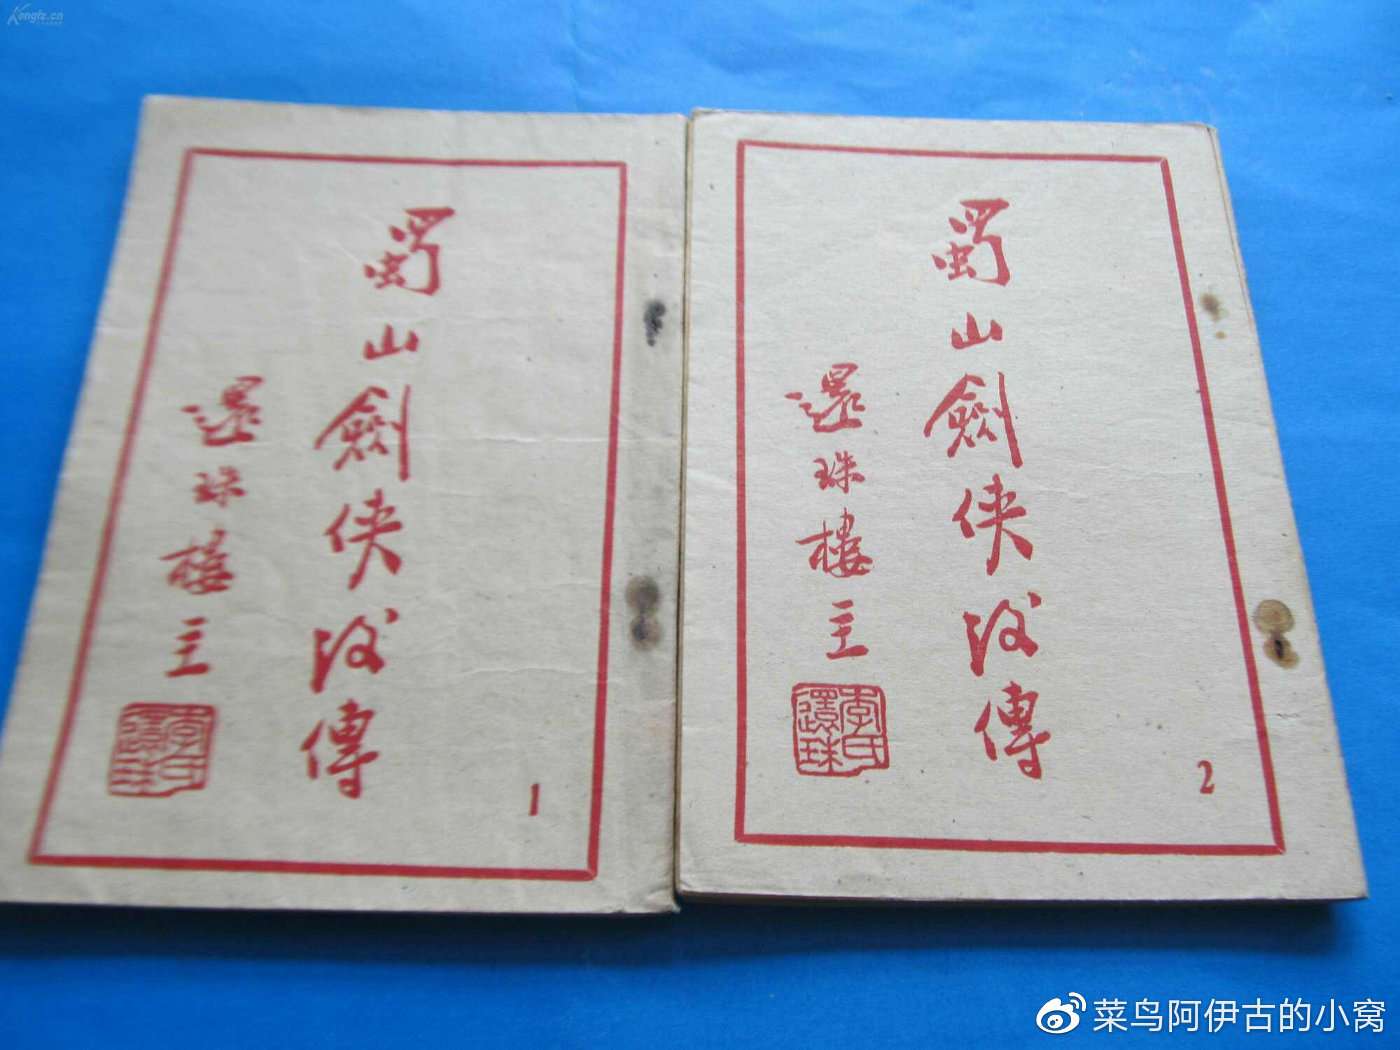 Kongfz.cn
蜀山劍俠后傳
還珠樓主
李氏還珠
1
蜀山劍俠后傳
還珠樓主
李氏還珠
2
菜鸟阿伊古的小窝